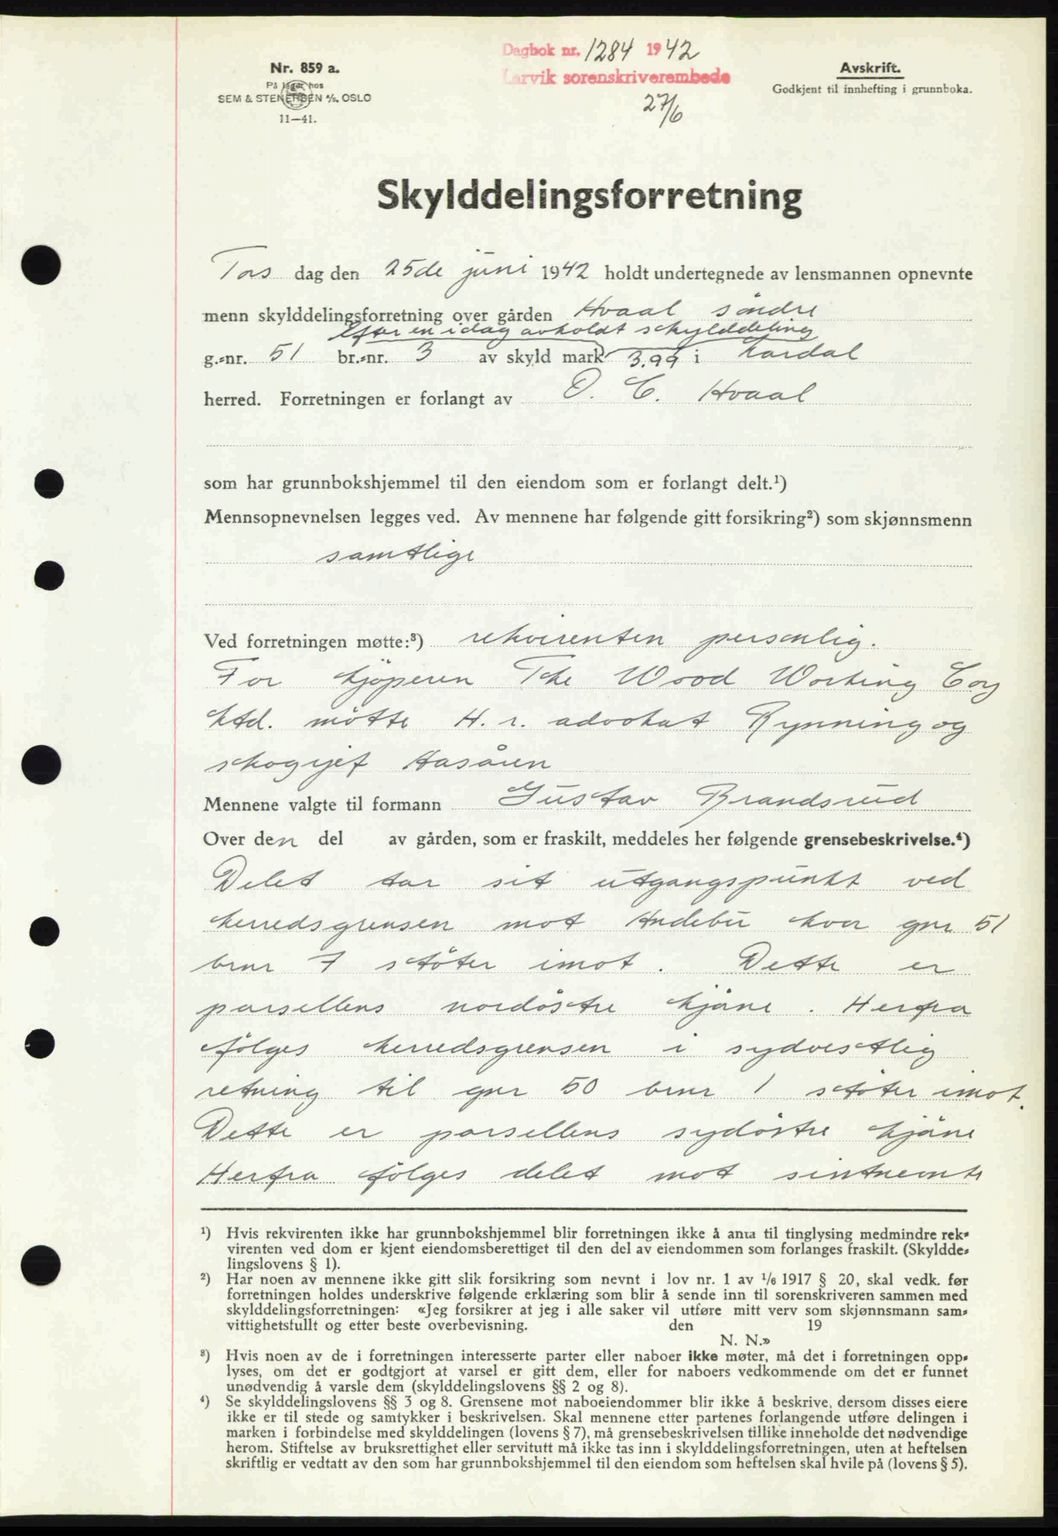 Dagbok nr. 1284 1942
Larvik sorenskriverembede
27/6
Nr. 859 a.
På lager hos
SEM & STENERSEN A/S, OSLO
11—41.
Avskrift.
Godkjent til innhefting i grunnboka.
Skylddelingsforretning
Tors dag den 25de juni 1942 holdt undertegnede av lensmannen opnevnte
menn skylddelingsforretning over gården Hvaal söndre
efter en idag avholdt skylddeling
g.-nr. 51 br.-nr. 3 av skyld mark 3.99 i Lardal
herred. Forretningen er forlangt av O. C. Hvaal
som har grunnbokshjemmel til den eiendom som er forlangt delt.¹)
Mennsopnevnelsen legges ved. Av mennene har følgende gitt forsikring²) som skjønnsmenn
samtlige
Ved forretningen møtte:³) rekvirenten personlig.
For kjöperen The Wood Working Coy
Ltd. mötte H. r. advokat Rynning og
skogsjef Hasåsen
Mennene valgte til formann Gustav Brandsrud
Over den del av gården, som er fraskilt, meddeles her følgende grensebeskrivelse.⁴)
Delet tar sit utgangspunkt ved
herredsgrensen mot Andebu hvor gnr 51
brnr 7 stöter imot. Dette er
parsellens nordöstre hjörne. Herfra
fölges herredsgrensen i sydvestlig
retning til gnr 50 brnr 1 stöter imot.
Dette er parsellens sydöstre hjörne
Herfra fölges delet mot sistnevnte
¹) Hvis rekvirenten ikke har grunnbokshjemmel blir forretningen ikke å anta til tinglysing medmindre rek-
virenten ved dom er kjent eiendomsberettiget til den del av eiendommen som forlanges fraskilt. (Skyldde-
lingslovens § 1).
²) Har noen av mennene ikke gitt slik forsikring som nevnt i lov nr. 1 av 1/6 1917 § 20, skal vedk. før
forretningen holdes underskrive følgende erklæring som blir å sende inn til sorenskriveren sammen med
skylddelingsforretningen: «Jeg forsikrer at jeg i alle saker vil utføre mitt verv som skjønnsmann sam-
vittighetsfullt og etter beste overbevisning. den 19
N. N.»
³) Hvis noen av de i forretningen interesserte parter eller naboer ikke møter, må det i forretningen opp-
lyses, om det er godtgjort at varsel er gitt dem, eller for naboers vedkommende om det er funnet
unødvendig å varsle dem (skylddelingslovens §§ 2 og 8).
⁴) Se skylddelingslovens §§ 3 og 8. Grensene mot naboeiendommer blir ikke å beskrive, dersom disses eiere
ikke er til stede og samtykker i beskrivelsen. Skal mennene etter partenes forlangende utføre delingen i
marken i forbindelse med skylddelingen (lovens § 7), må grensebeskrivelsen tillike inneholde det nødvendige
herom. Stiftelse av bruksrettighet eller servitutt må ikke tas inn i skylddelingsforretningen, uten at heftelsen
skriftlig er vedtatt av den som har grunnbokshjemmel til den eiendom som heftelsen skal hvile på (lovens § 5).